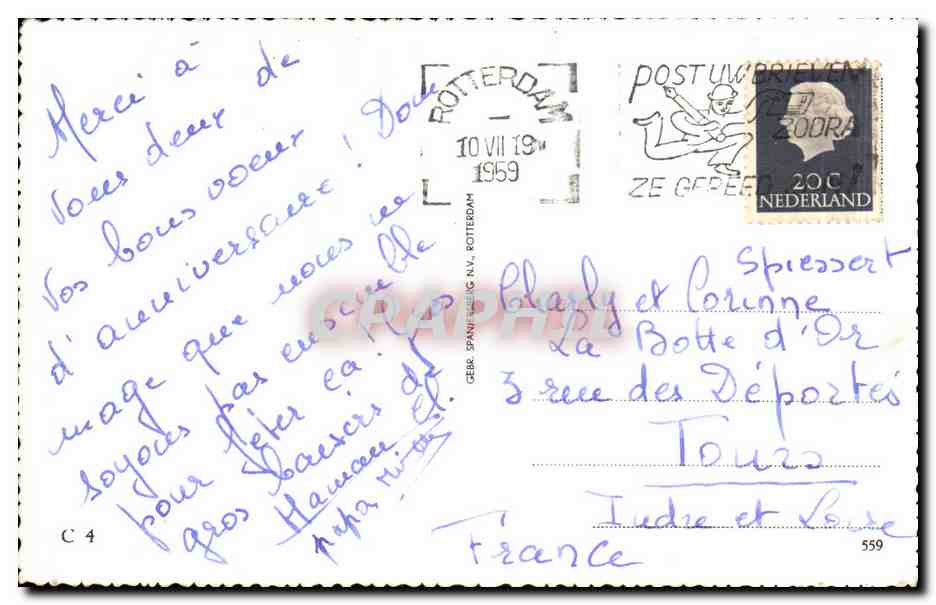 Merci à
vous deux de
vos bons voeux
d'anniversaire! Dom
mage que nous ne
soyons pas ensemble
pour fêter ça! Nos
gros baisers de
Maman et
papa
ROTTERDAM
10 VII 19
1959
POST UW BRIEVEN
ZE GEREED
20 C
NEDERLAND
GEBR. SPANJERSBERG N.V., ROTTERDAM
CPAPHIL
Spiessert
Charly et Corinne
La Botte d'Or
3 rue des Déportés
Tours
Indre et Loire
France
C 4
559